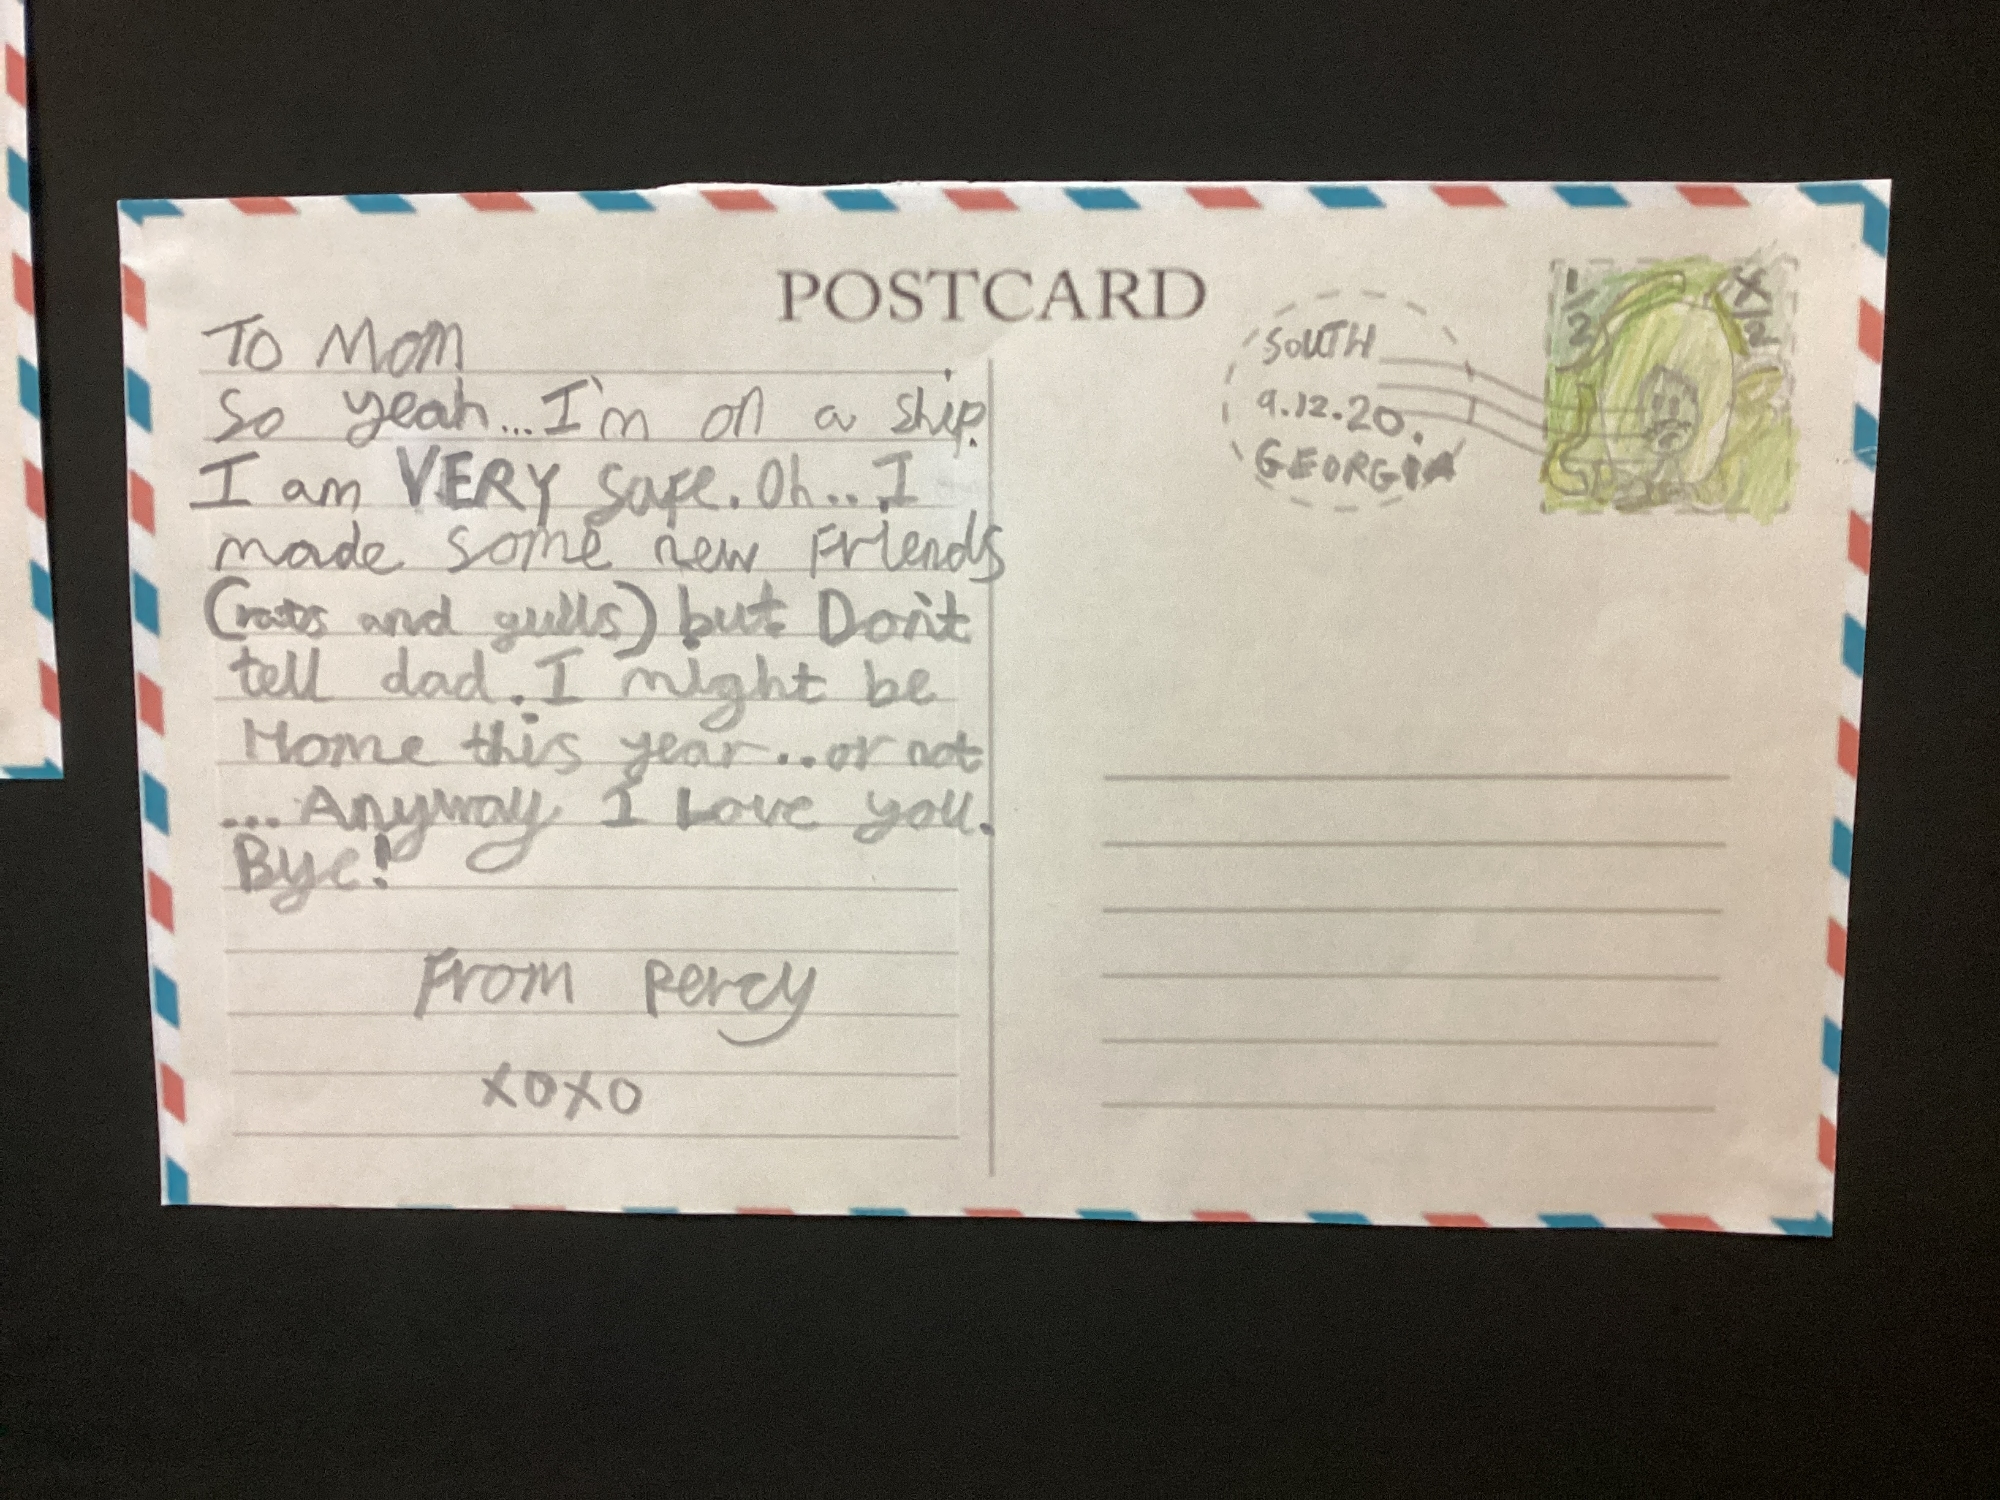 POSTCARD
To Mom
So yeah...I'm on a ship.
I am VERY safe. Oh...I
made some new Friends
(rats and gulls) but Don't
tell dad. I might be
Home this year...or not
...Anyway I Love you.
Bye!
From Percy
xoxo
SOUTH
9.12.20.
GEORGIA
1/2
X/2